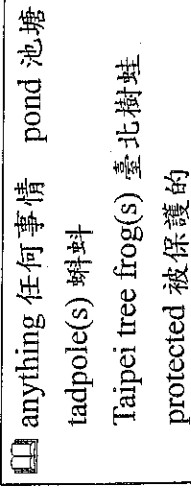 anything 任何事情 pond 池塘
tadpole(s) 蝌蚪
Taipei tree frog(s) 臺北樹蛙
protected 被保護的